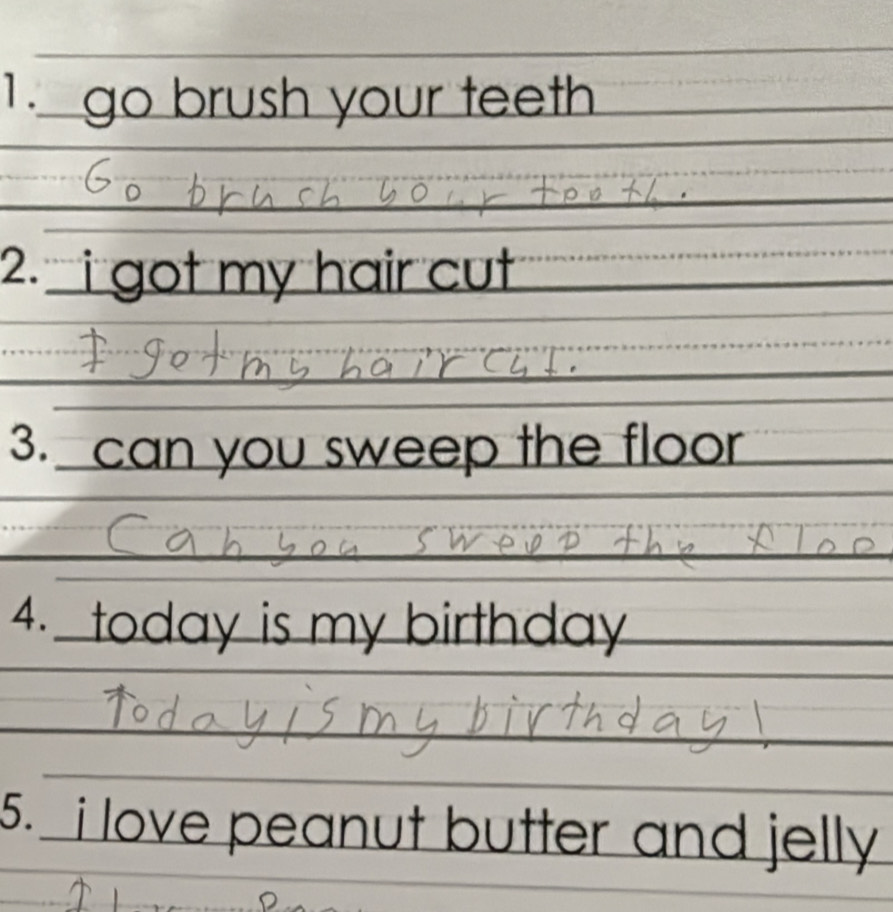 1. go brush your teeth
Go brush your tooth.
2. i got my hair cut
I got my hair cut.
3. can you sweep the floor
Can you sweep the floo
4. today is my birthday
Today is my birthday!
5. i love peanut butter and jelly
I